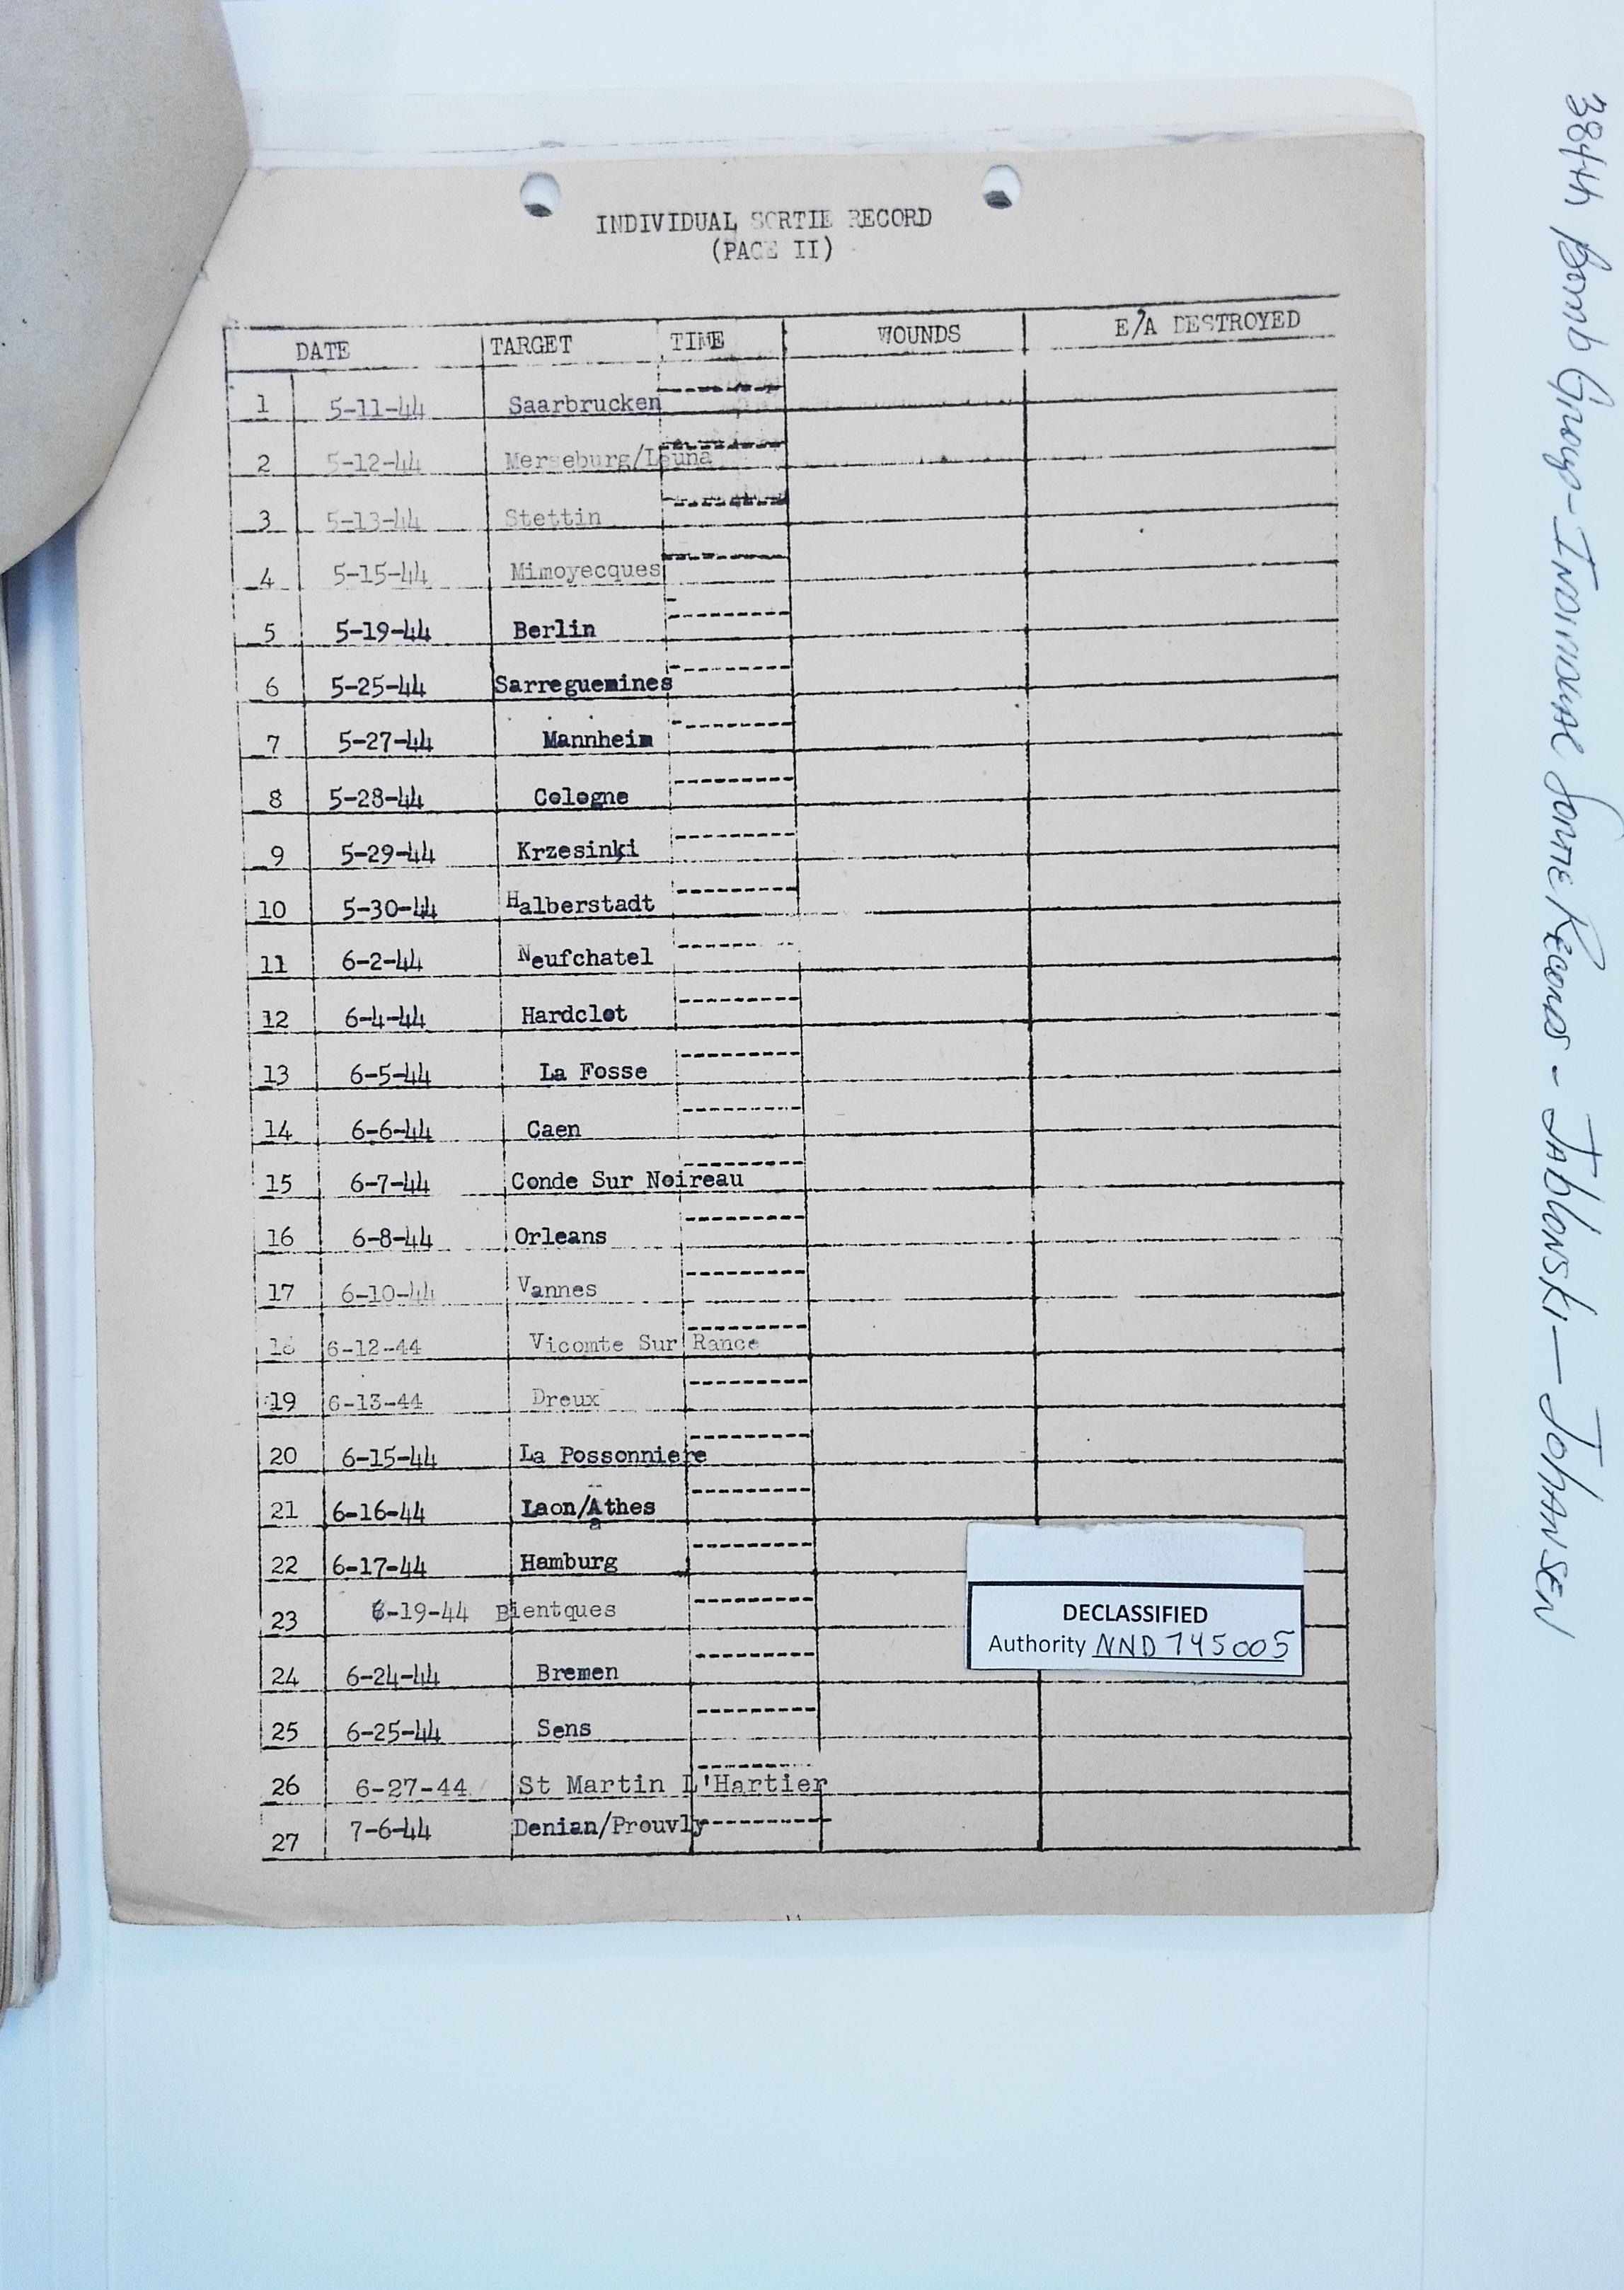 INDIVIDUAL SORTIE RECORD
(PAGE II)
DATE TARGET TIME WOUNDS E/A DESTROYED
1 5-11-44 Saarbrucken
2 5-12-44 Merseburg/Leuna
3 5-13-44 Stettin
4 5-15-44 Mimoyecques
5 5-19-44 Berlin
6 5-25-44 Sarreguemines
7 5-27-44 Mannheim
8 5-28-44 Cologne
9 5-29-44 Krzesinki
10 5-30-44 Halberstadt
11 6-2-44 Neufchatel
12 6-4-44 Hardclot
13 6-5-44 La Fosse
14 6-6-44 Caen
15 6-7-44 Conde Sur Noireau
16 6-8-44 Orleans
17 6-10-44 Vannes
18 6-12-44 Vicomte Sur Rance
19 6-13-44 Dreux
20 6-15-44 La Possonniere
21 6-16-44 Laon/Athes
22 6-17-44 Hamburg
23 6-19-44 Bientques
24 6-24-44 Bremen
25 6-25-44 Sens
26 6-27-44 St Martin L'Hartier
27 7-6-44 Denian/Prouvly
DECLASSIFIED
Authority NND 745005
384th Bomb Group - Individual Sortie Records - Jablonski — Johansen